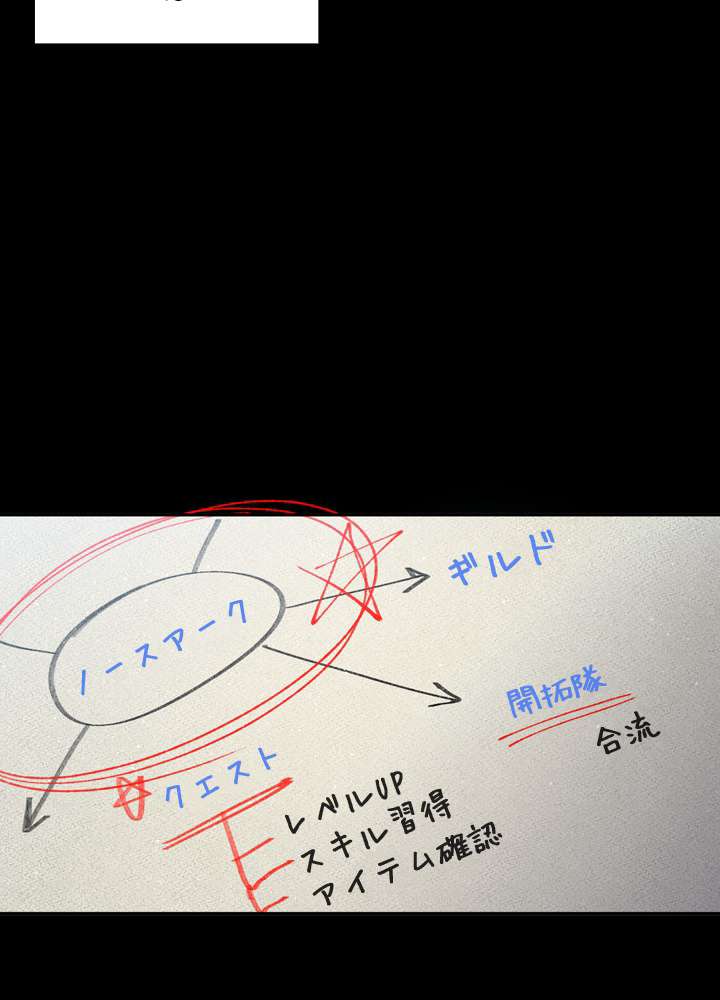 ギルド
ノースアーク
開拓隊
合流
クエスト
レベルUP
スキル習得
アイテム確認